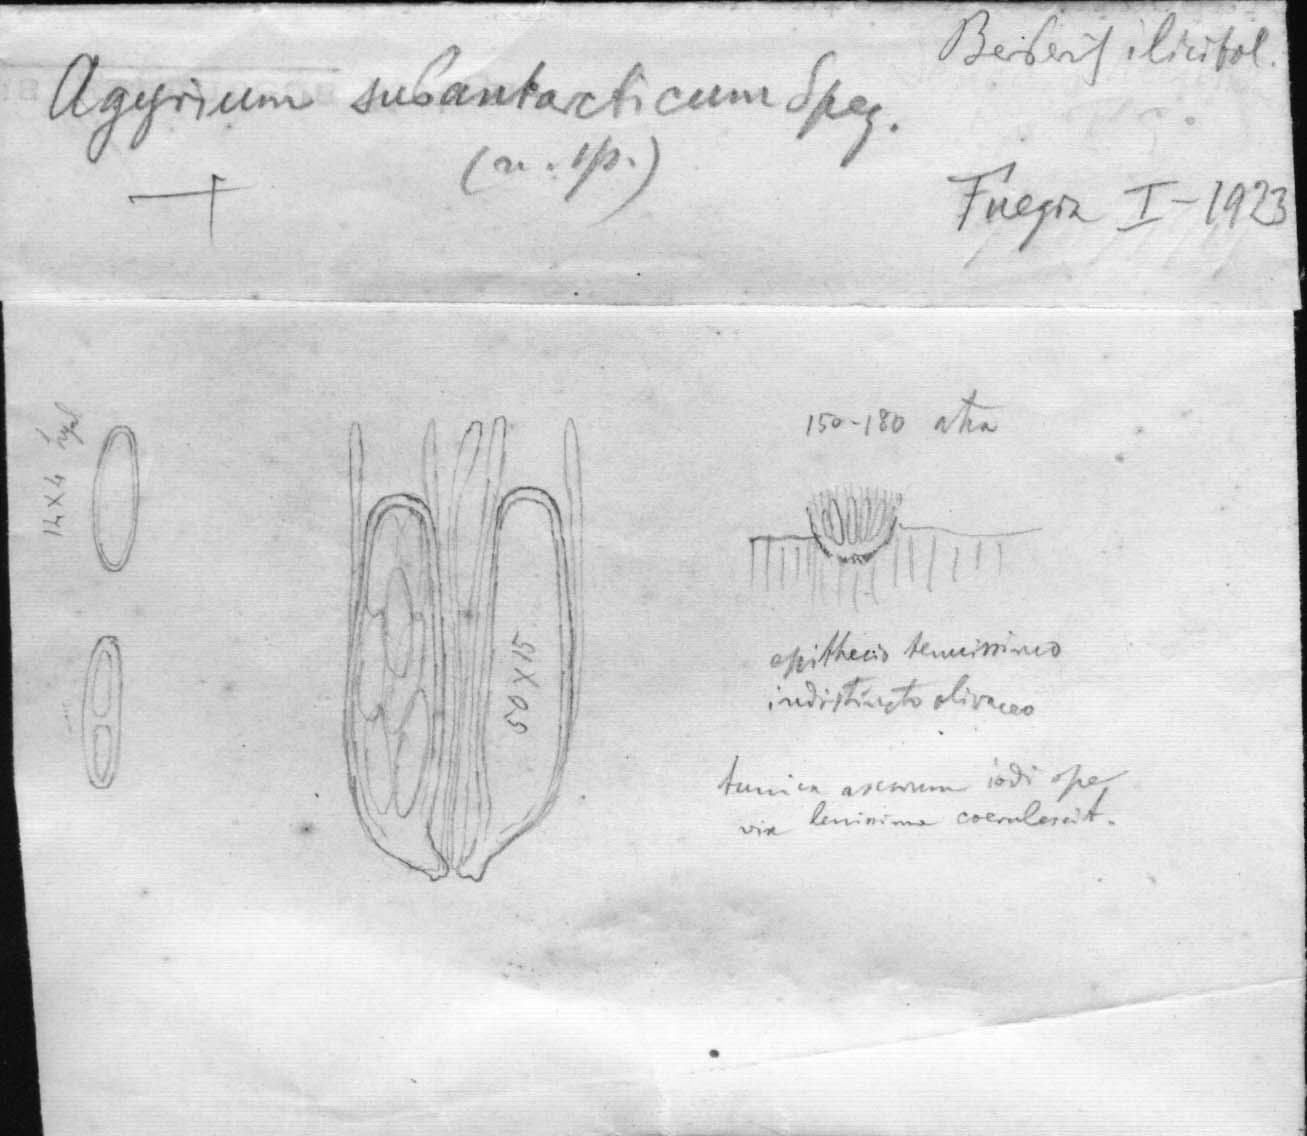 Berberis ilicifol.
Agyrium subantarcticum Speg.
(n. sp.)
Fuegia I-1923
150-180 atra
14 X 4 hyal
50 X 15
epithecio tenuissimo
indistincto olivaceo
tunica ascorum iodi ope
vix lenissime coerulescit.